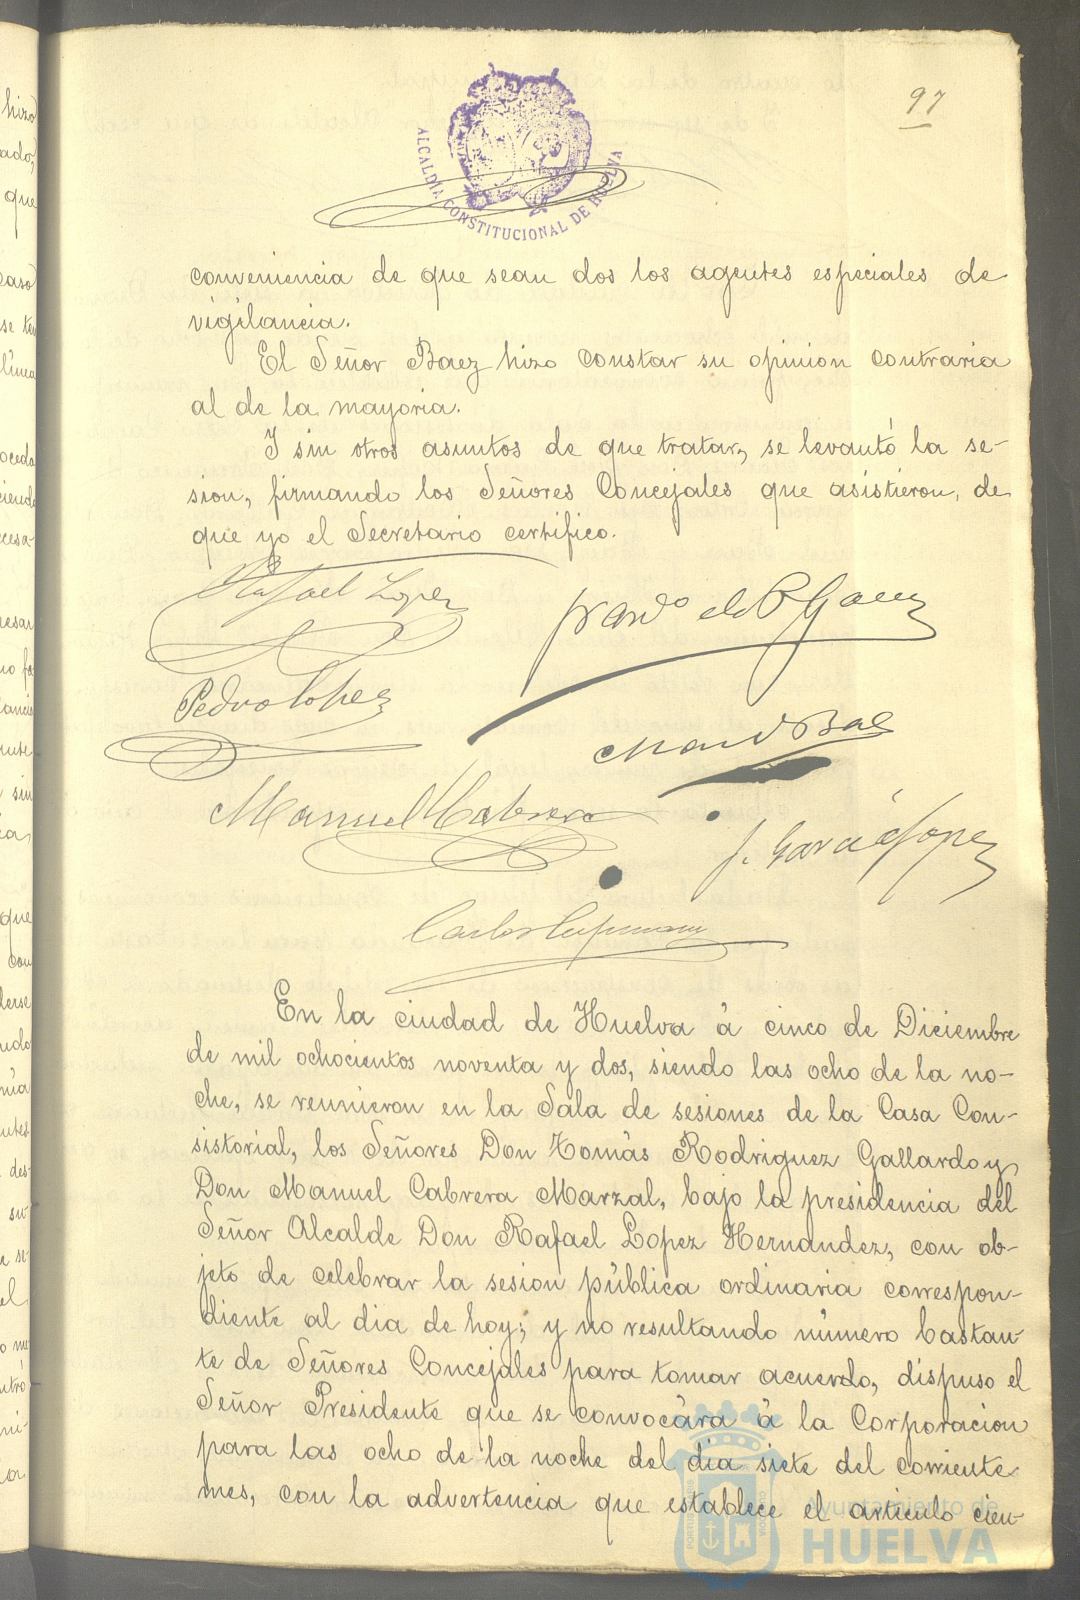 97
ALCALDIA CONSTITUCIONAL DE HUELVA
conveniencia de que sean dos los agentes especiales de
vigilancia.
El Señor Baez hizo constar su opinion contraria
al de la mayoria.
I sin otros asuntos de que tratar, se levantó la se-
sion, firmando los Señores Concejales que asistieron, de
que yo el Secretario certifico.
Rafael Lopez
Pedro Lopez
Manuel Cabrera
J. Garcia Lopez
Carlos
En la ciudad de Huelva á cinco de Diciembre
de mil ochocientos noventa y dos, siendo las ocho de la no-
che, se reunieron en la Sala de sesiones de la Casa Con-
sistorial, los Señores Don Tomás Rodriguez Gallardo y
Don Manuel Cabrera Marzal, bajo la presidencia del
Señor Alcalde Don Rafael Lopez Hernandez, con ob-
jeto de celebrar la sesion pública ordinaria correspon-
diente al dia de hoy; y no resultando número bastan-
te de Señores Concejales para tomar acuerdo, dispuso el
Señor Presidente que se convocára á la Corporacion
para las ocho de la noche del dia siete del corriente
mes, con la advertencia que establece el articulo cien-
Ayuntamiento de
HUELVA